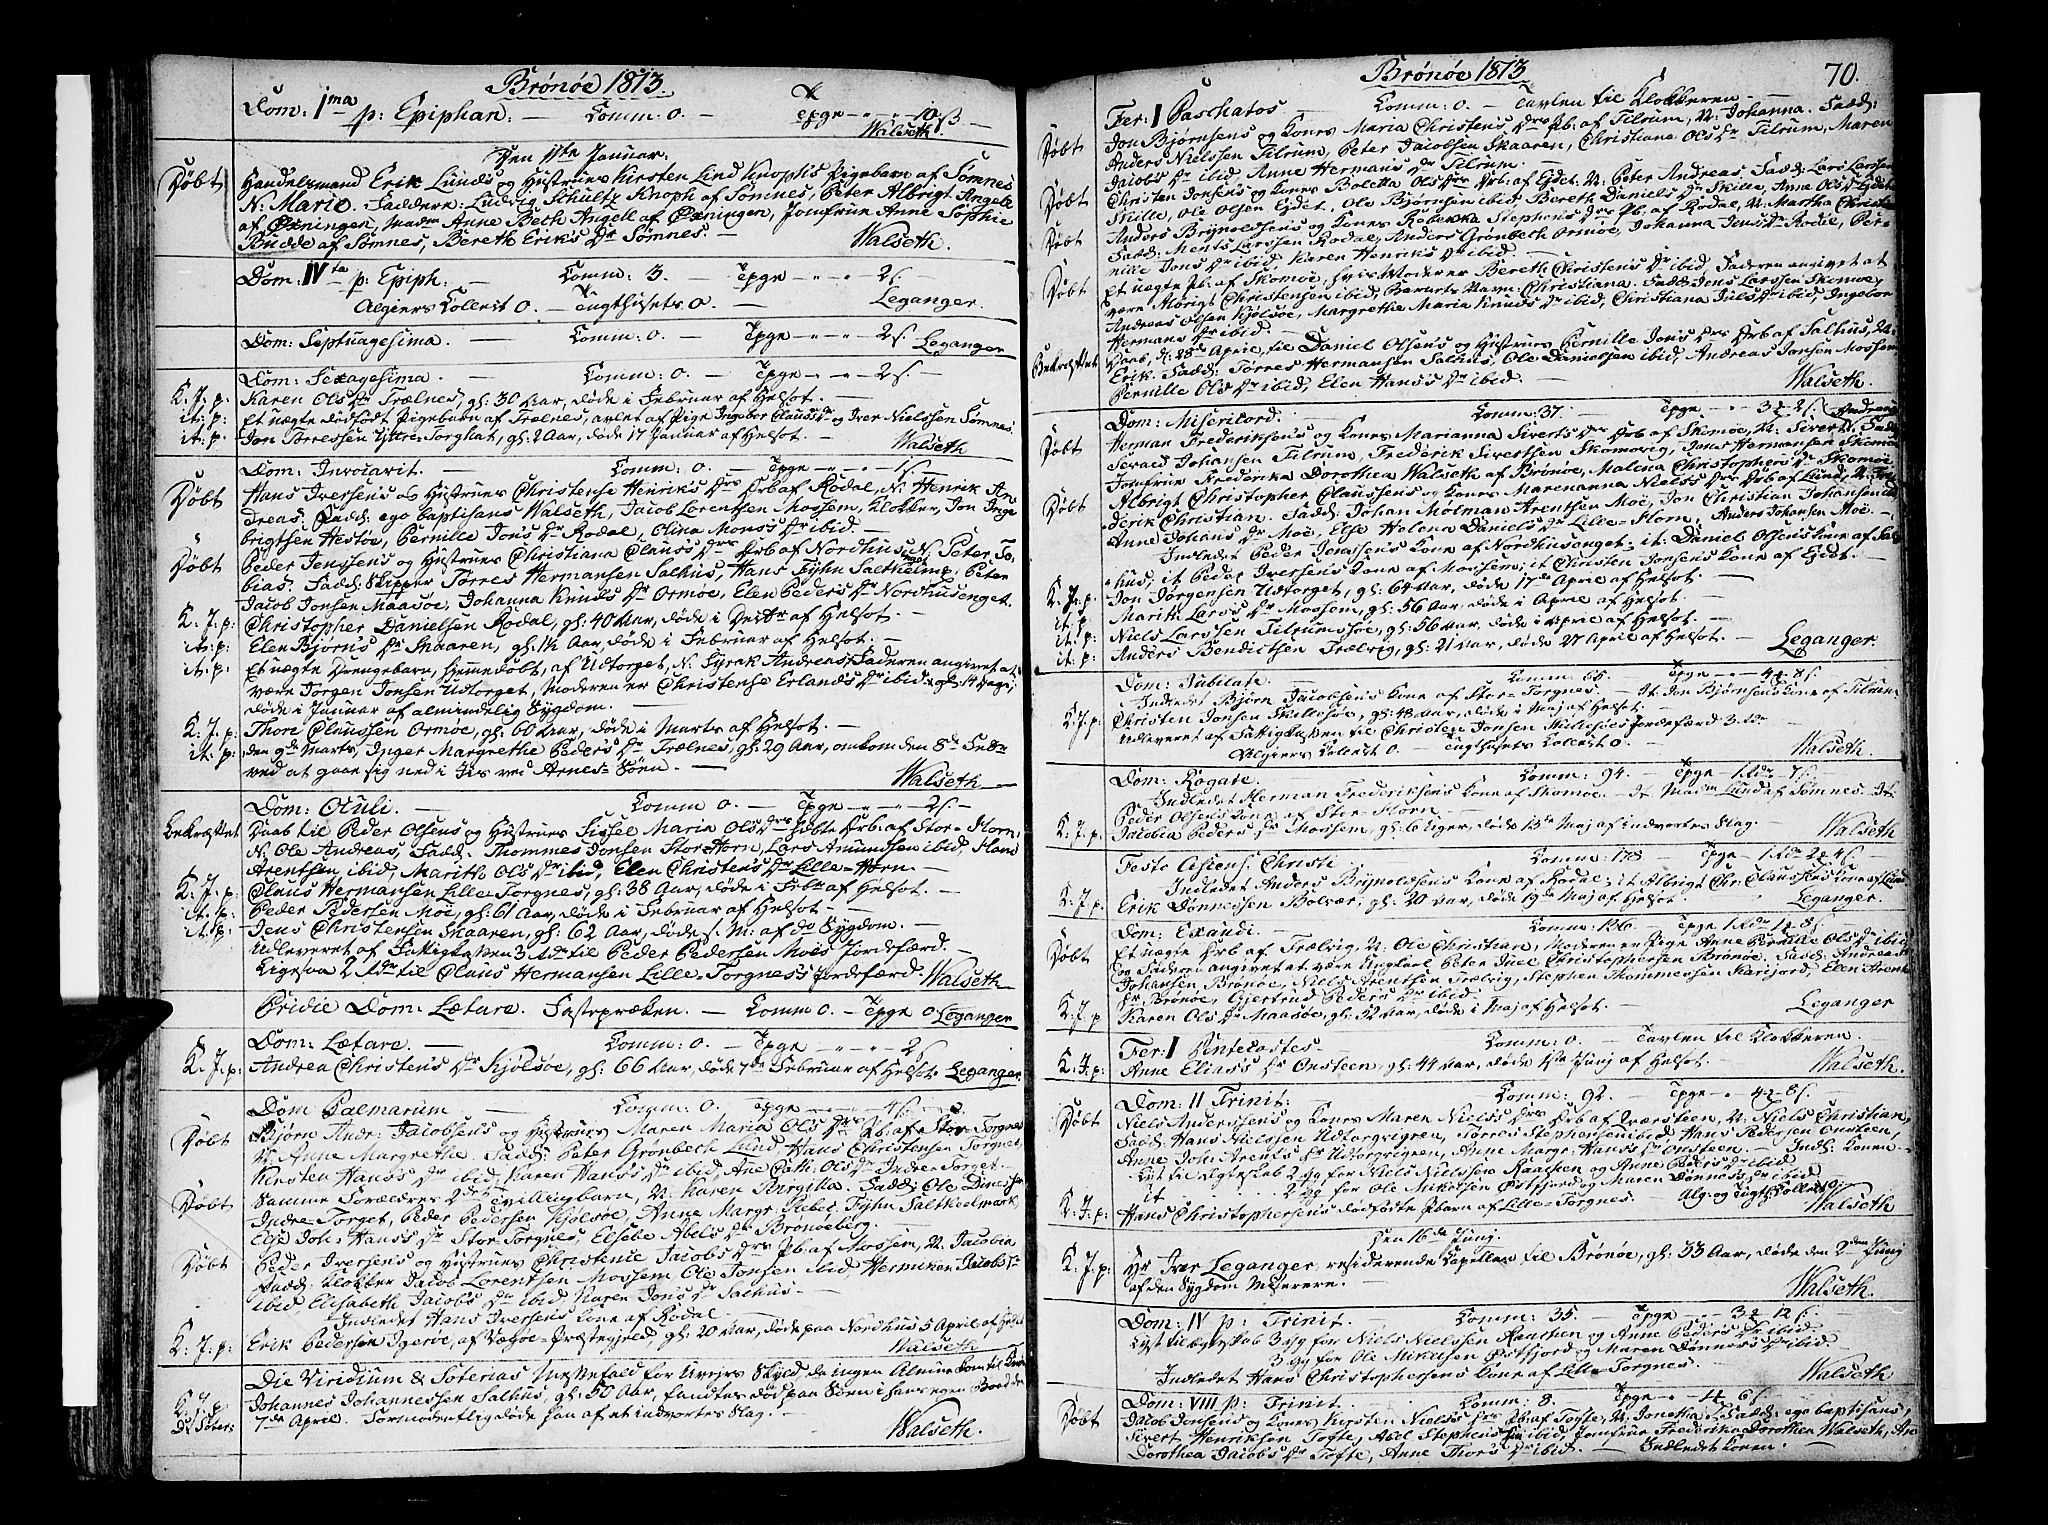 Brönöe 1813.
Dom: 1ma p: Epiphan: — Comm: 0. — Tpge " " 10 ß —
Walseth.
Den 11te Januar.
Döbt Handelsmand Erik Lund's og Hustrues Kirsten Lind Knophs Pigebarn af Sömnes
N: Marie. Faddere: Ludvig Schultz Knoph af Sömnes, Peter Albrigt Angell
af Öxningen, Madm Anne Beth Angell af Öxningen, Jomfrue Anne Sophie
Budde af Sömnes, Bereth Erik's Dr Sömnes. — Walseth.
Dom: IVta p: Epiph. — Comm: 3. Tpge " " 2 ß.
Algiers Collect 0. — Tugthusets 0. — Leganger.
Dom: Septuagesima. — Comm: 0. — Tpge " " 2 ß. Leganger
Dom: Sexagesima. — Comm: 0. — Tpge " " 2 ß.
K. J. p: Karen Ols Dr Trælnes, gl: 30 Aar, döde i Februar af Helsot. —
it: p: Et uægte dödfödt Pigebarn af Trælnes, avlet af Pige Ingebor Clauss Dr og Iver Nielssen Sömnes.
it: p: Jon Arressen Yttre-Torghat, gl: 2 Aar, döde 17 Januar af Helsot. — Walseth
Dom: Invocavit. — Comm: 0. — Tpge " " 1 ß.
Döbt Hans Iversen's og Hustrues Christense Henrik's Drs Drb af Rodal, N: Henrik An-
dreas. Fadd: ego baptisans Walseth, Jacob Lorentsen Mossem, Klokker, Jon Inge-
brigtsen Hestöe, Pernille Jons Dr Rodal, Olina Mons's Dr ibid. —
Döbt Peder Jenssens og Hustrues Christiana Clauss's Drs Drb af Nordhus, N: Peter To-
bias. Fadd: Skipper Törres Hermansen Salhus, Hans Fyhn Salthelmp: Peter
Jacob Jonsen Maasöe, Johanna Knuds Dr Ormöe, Elen Peders Dr Nordhusenget.
K. J. p: Christopher Danielsen Rodal, gl: 40 Aar, döde i Decbr af Helsot. —
it: p: Elen Björn's Dr Skaaren, gl: 1½ Aar, döde i Februar af Helsot. —
it: p: Et uægte Drengebarn, hjemmedöbt, af Udtorget, N: Syrak Andreas, Faderen angivet at
være Jörgen Jonsen Udtorget, Moderen er Christense Erland's Dr ibid. gl: 14 Dage,
döde i Januar af almindelig Sygdom. —
K. J. p: Thore Claussen Ormöe, gl: 60 Aar, döde i Marts af Helsot. —
it: p: den 9de Marts, Inger Margrethe Peders Dr Trælnes, gl: 29 Aar, omkom den 8de Febr
ved at gaae sig ned i Iis ved Arnes-Söen. — Walseth
Dom: Oculi. — Comm 0. — Tpge " " 2 ß.
Bekræftet Daab til Peder Olsens og Hustrues Sissel Maria Ols Drs ægte Drb: af Stor-Horn,
N: Ole Andreas, Fadd: Thommes Jonsen Stor-Horn, Lars Amundsen ibid, Hans
Arentsen ibid, Marith Ols Dr ibid, Elen Christen's Dr Lille-Horn. —
K. J. p: Claus Hermansen Lille-Torgnes, gl: 38 Aar, döde i Febr af Helsot. —
it: p: Peder Pedersen Möe, gl: 61 Aar, döde i Februar af Helsot. —
it: p: Jens Christensen Skaaren, gl: 62 Aar, döde s. M: af do Sygdom. —
Udleveret af Fattigkassen 3 Rdr til Peder Pedersen Moes Jordefærd. —
Ligesaa 2 Rdr til Claus Hermansen Lille-Torgness's Jordefærd. Walseth
Pridie Dom: Lætare. Fasteprædken. — Comm 0. — Tpge 0 Leganger
Dom: Lætare. — Comm: 0. — Tpge " " 2 ß.
K. J. p: Andrea Christen's Dr Kjölsöe, gl: 66 Aar, döde 7de Februar af Helsot. Leganger.
Dom Palmarum — Comm: 0. — Tpge — — 4 ß.
Döbt Björn Andr: Jacobsens og Hustrues Maren Maria Ols Drs Pb: af Stor-Torgnes
N: Anne Margrethe. Fadd: Peter Grönbech Lund, Hans Christensen Torgnes,
Kirsten Hans's Dr ibid, Karen Hans's Dr ibid, Ane Cath: Ols Dr Indre-Torget.
Döbt Samme Forældres 2det Tvillingbarn, N: Karen Birgitta. Fadd: Ole Dinessen
Indre-Torget, Peder Pedersen Kjölsöe, Anne Margr: Rabel, Fyhn Salthelmark,
Else Joh: Hans's Dr Stor-Torgnes, Elsebe Abels Dr Brönöeberg.
Döbt Peder Iversens og Hustrues Christense Jacobs Drs Pb: af Mossem, N: Jacobia
Fadd: Klokker Jacob Lorentsen Mossem, Ole Jonsen ibid, Hermiken Jacobs Dr
ibid, Elisabeth Jacobs Dr ibid, Karen Jons Dr Salhus. —
Indledet Hans Iversens Kone af Rodal —
K. J. p: Erik Pedersen Igeröe, af Vegöe-Præstegjeld, gl: 20 Aar, döde paa Nordhus 5 April af Helsot
Walseth
Die Viridium & Soterias Messefald for Uveirs Skyld da ingen Almue kom til Kirke
K. J. p: Johannes Johannessen Salhus, gl: 50 Aar, fandtes död paa Söen i hans egen Baad den
7de April. Formodentlig döde han af et indvortes Slag. —
Walseth.
Brönöe 1813 70.
Fer: I Paschatos — Comm: 0. — Tavlen til Klokkeren —
Döbt Jon Björnsens og Kones Maria Christens Drs Pb: af Tilrum, N: Johanna. Fadd:
Anders Nielssen Tilrum, Peter Jacobsen Skaaren, Christiana Ols Dr Tilrum, Maren
Jacobs Dr ibid, Anne Hermans Dr Tilrum. —
Döbt Christen Jonsens og Kones Boletta Ols Drs Drb: af Eydet. N: Peter Andreas. Fadd: Lars Larssen
Skille, Ole Olsen Eydet, Ole Björnsen ibid, Bereth Daniels Dr Skille, Ane Ols Dr Eydet
Döbt Anders Brynoldsens og Kones Rebekka Stephens Drs Pb: af Rodal, N: Martha Christi
Fadd: Ments Larssen Rodal, Anders Grönbech Ormöe, Johanna Jens's Dr Rodal, Per-
nille Jons Dr ibid, Karen Henriks Dr ibid. —
Döbt Et uægte Pb: af Skomöe, hvis Moder er Bereth Christens Dr ibid, Faderen angivet at
være Albrigt Christensen ibid, Barnets Navn: Christiana. Fadd: Jens Larssen Skomöe,
Andreas Olsen Kjölsöe, Margrethe Maria Knuds Dr ibid, Christiana Juls Dr ibid, Ingebor
Hermans Dr ibid. —
Bekræftet Daab, d: 25de April, til Daniel Olsens og Hustrues Pernille Jons Drs Drb: af Salhus, N:
Erik. Fadd: Törres Hermansen Salhus, Ole Danielsen ibid, Andreas Jonsen Mossem
Pernille Ols Dr ibid, Elen Hans's Dr ibid. — Walseth.
Dom: Misericord. — Comm: 37. — Tpge " 3 ¼ 2 ß. (Andreas
Döbt Herman Frederiksens og Kones Marianna Siverts Drs Drb af Skomöe, N: Sivert. Fadd:
Sevald Johansen Tilrum, Frederik Sivertsen Skomovig, Jens Hermansen Skomöe
Jomfrue Frederica Dorothea Walseth af Brönöe, Malena Christophers Dr Skomöe
Döbt Albrigt Christopher Claussens og Kones Marenanna Niels's Drs Drb af Lund, N: Fri-
derik Christian. Fadd: Johan Molman Arentsen Moe, Jon Christian Johansen ibid,
Anne Johans Dr Moe, Else Helena Daniels Dr Lille-Horn, Anders Johansen Moe. —
Indledet Peder Jenssens Kone af Nordhusenget; it: Daniel Olsens Kone af Sal-
hus, it Peder Iversens Kone af Mossem; it: Christen Jonsens Kone af Eydet. —
K. J. p: Jon Jörgensen Udtorget, gl: 64 Aar, döde 17de April af Helsot. —
it: p: Marith Lars's Dr Mossem, gl: 56 Aar, döde i April af Helsot. —
it: p: Niels Larssen Tilrumssöe, gl: 56 Aar, döde i April af Helsot. —
it: p: Anders Bendictsen Trælvig, gl: 21 Aar, döde 27 April af Helsot. — Leganger.
Dom: Jubilate. — Comm: 68. — Tpge " 4 ¼ 8 ß.
Indledet Björn Jacobsens Kone af Stor-Torgnes. — It: Jon Björnsens Kone af Tilrum
K. J. p: Christen Jonsen Skillesöe, gl: 48 Aar, döde i Maj af Helsot. —
Udleveret af Fattigkassen til Christen Jonsen Skillesöes Jordefærd 3 Rdr
Algiers Collect 0. — Tugthusets Collect 0. — Walseth.
Dom: Rogate. — Comm: 94. — Tpge 1 Rdr " 7 ß.
Indledet Herman Frederiksens Kone af Skomöe. — It Madm Lund af Sömnes. It
Peder Olsens Kone af Stor-Horn.
K. J. p: Jacobia Peders Dr Mossem, gl: 6 Uger, döde 13de Maj af indvortes Slag. — Walseth
Festo Ascens: Christi — Comm: 178 — Tpge " 1 Rdr 2 ¼ 4 ß.
Indledet Anders Brynoldsens Kone af Rodal; it Albrigt Chr: Claussens Kone af Lund
K. J. p. Erik Dönnessen Bolvær, gl: 20 Aar, döde 19de Maj af Helsot. — Leganger.
Dom: Exaudi. — Comm: 126. — Tpge 1 Rdr 1 ¼ 8 ß.
Döbt Et uægte Drb af Trælvig, N: Ole Christian, Moderen er Pige Anne Pernille Ols Dr ibid,
og Faderen angivet at være Ungkarl Peter Juel Christophersen Brönöe. Fadd: Andreas
Johansen Brönöe, Niels Arentsen Trælvig, Stephen Thommessen Skarfjord, Elen Arents
Dr Brönöe, Gjertrud Peders Dr ibid. —
K. J. p Karen Ols Dr Maasöe, gl: 52 Aar, döde i Maj af Helsot. — Leganger
Fer: I Pentecostes — Comm: 0. — Tavlen til Klokkeren. —
K. J. p: Anne Elias's Dr Onsteen, gl: 44 Aar, döde 1ste Junj af Helsot. — Walseth.
Dom: II Trinit: — Comm: 92. — Tpge " 4 ¼ 8 ß.
Döbt Niels Andersens og Kones Maren Niels's Drs Drb af Tværsteen, N: Niels Christian,
Fadd: Hans Nielssen Udtorgvigren, Törres Stephensen ibid, Hans Pedersen Onsteen,
Anne Joh: Arents Dr Udtorgvigren, Anne Margr: Hans's Dr Onsteen. — Indl: Konen. —
Lyst til Ægteskab 2 Gg for Niels Nielssen Kaassen og Anne Peders Dr ibid
it . . . . . . 2 Gg for Ole Mikelsen Østfjord og Maren Dönness's Dr ibid
K. J. p: Hans Christophersens dödfödte Pbarn af Lille-Torgnes. Alg: og Tugth: Collect 0. Walseth
den 16de Junj.
K. J. p: Hr Iver Leganger, residerende Capellan til Brönöe, gl: 33 Aar, döde den 2den Junj
af den Sygdom Miserere. — Walseth.
Dom: IV p: Trinit. — Comm: 35. — Tpge " 3 ¼ 12 ß.
Lyst til Ægteskab 3 Gg for Niels Nielssen Kaassen og Anne Peders Dr ibid
3 Gg for Ole Mikelsen Østfjord og Maren Dönness Dr ibid.
Indledet Hans Christophersens Kone af Lille-Torgnes. — Walseth.
Dom: VIII p: Trinit. — Comm: 8. — Tpge " 4 6 ß.
Döbt Jacob Jonsens og Kones Kirsten Niels's Drs Pb: af Tofte, N: Jonetta. Fadd: ego baptisans,
Sivert Henriksen Tofte, Abel Stephens Dr ibid, Jomfrue Frederika Dorothea Walseth, An
Dorothea Jacobs Dr Tofte, Anne Thors Dr ibid. — Indledet Konen. —